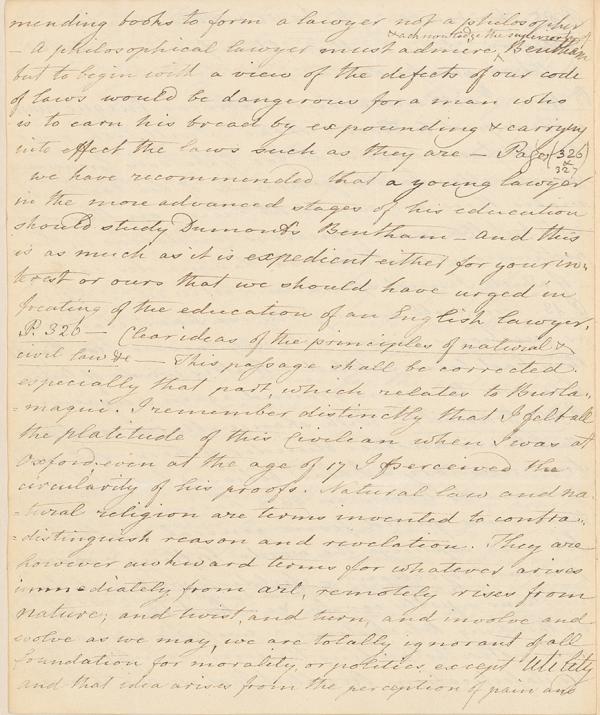 mending books to form a lawyer not a philosopher
& acknowledge the superiority of
– A philosophical lawyer must admire ^ Bentham
but to begin with a view of the defects of our code
of laws would be dangerous for a man who
is to earn his bread by expounding & carrying
into effect the laws such as they are – Page (326)
& 327
we have recommended that a young lawyer
in the more advanced stages of his education
should study Dumont's Bentham – and this
is as much as it is expedient either for your in-
terest or ours that we should have urged in
treating of the education of an English lawyer.
P. 326 – Clear ideas of the principles of natural &
civil law &c – This passage shall be corrected.
especially that part, which relates to Burla-
=maqui. I remember distinctly that I felt all
the platitude of this Civilian when I was at
Oxford. even at the age of 17 I perceived the
circularity of his proofs. Natural law and na-
-tural religion are terms invented to contra-
=distinguish reason and revelation. They are
however awkward terms for whatever arises
immediately from art, remotely rises from
nature; and twist, and turn, and involve and
evolve as we may, we are totally ignorant of all
foundation for morality, or politics, except Utility
and that idea arises from the perception of pain and